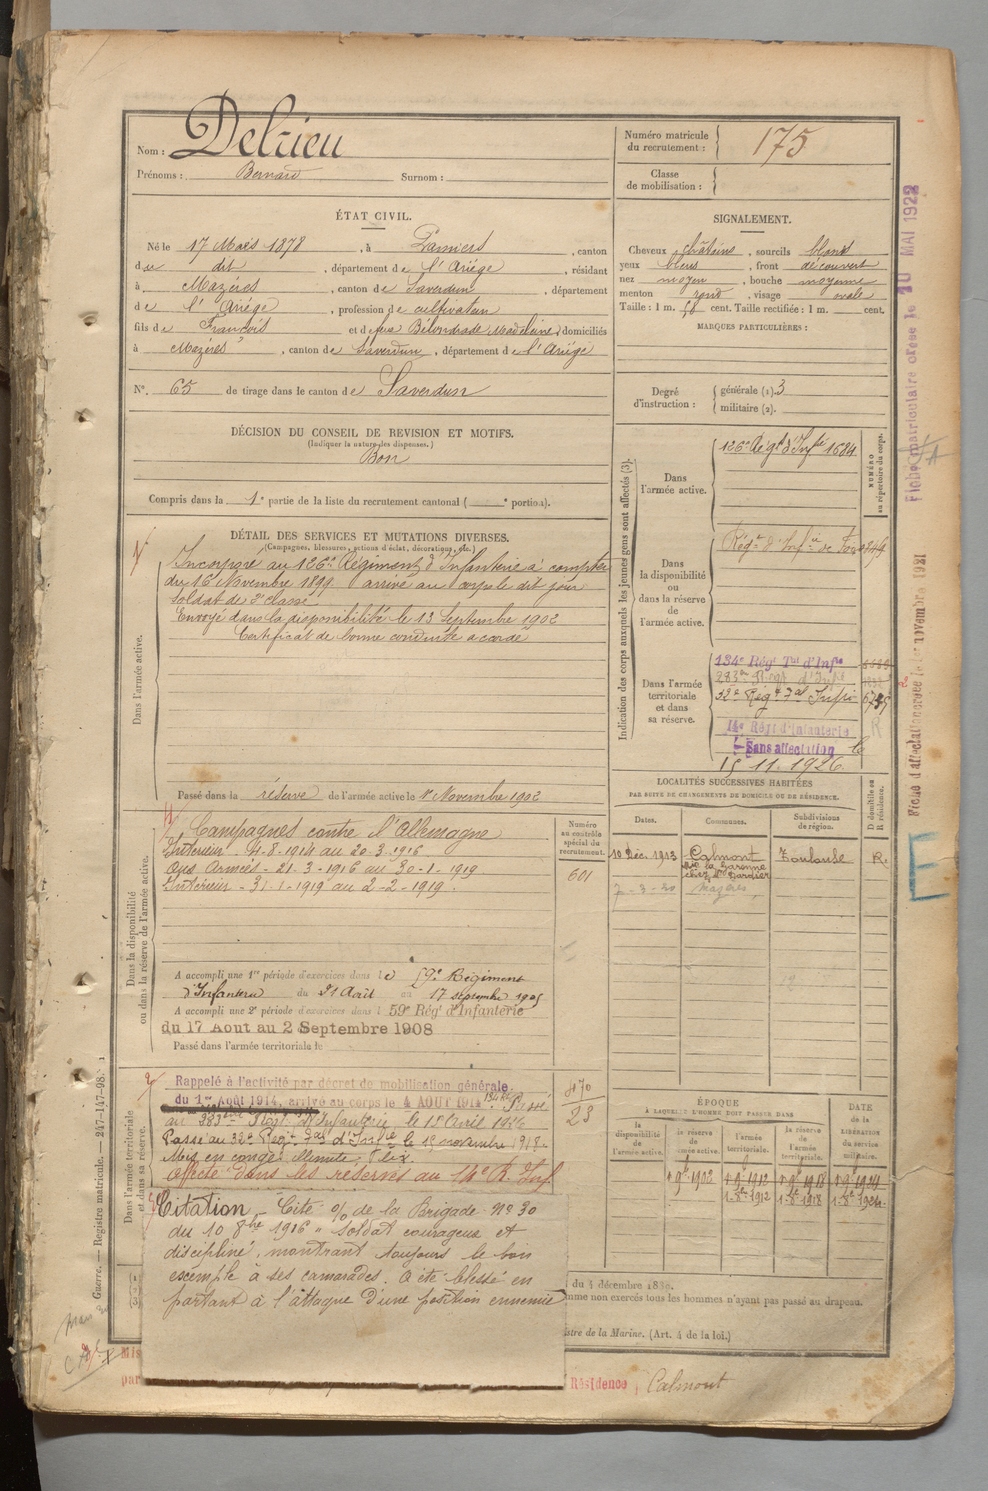 Nom : Delrieu
Prénoms : Bernard Surnom :
Numéro matricule du recrutement : 175
Classe de mobilisation :
ÉTAT CIVIL.
Né le 17 Mars 1878, à Pamiers, canton
du dit, département de l'Ariège, résidant
à Mazères, canton de Saverdun, département
de l'Ariège, profession de cultivateur
fils de François et de feue Bélondrade Madeleine, domiciliés
à Mazères, canton de Saverdun, département de l'Ariège
N°. 65 de tirage dans le canton de Saverdun
DÉCISION DU CONSEIL DE REVISION ET MOTIFS.
(Indiquer la nature des dispenses.)
Bon
Compris dans la 1e partie de la liste du recrutement cantonal ( e portion).
SIGNALEMENT.
Cheveux châtains, sourcils blonds
yeux bleus, front découvert
nez moyen, bouche moyenne
menton rond, visage ovale
Taille : 1 m. 58 cent. Taille rectifiée : 1 m. cent.
MARQUES PARTICULIÈRES :
Degré d'instruction : générale (1). 3
militaire (2).
DÉTAIL DES SERVICES ET MUTATIONS DIVERSES.
(Campagnes, blessures, actions d'éclat, décorations, etc.)
Dans l'armée active.
Incorporé au 126e Régiment d'Infanterie à compter
du 16 Novembre 1899 arrivé au corps le dit jour
soldat de 2e classe
Envoyé dans la disponibilité le 13 Septembre 1902
Certificat de bonne conduite accordé
Passé dans la réserve de l'armée active le 1er Novembre 1902
Indication des corps auxquels les jeunes gens sont affectés (3).
NUMÉRO au répertoire du corps.
Dans l'armée active.
126e Régt d'Infie 1684
Dans la disponibilité ou dans la réserve de l'armée active.
Régt d'Infie de Foix
Dans l'armée territoriale et dans sa réserve.
134e Régt Tal d'Infie
283e Regt d'Infie
32e Regt Tal Infie
14e Régt d'Infanterie
Sans affectation le
15.11.1926
Dans la disponibilité ou dans la réserve de l'armée active.
Campagnes contre l'Allemagne
Intérieur - 4-8-1914 au 20-3-1916
Aux Armées - 21-3-1916 au 30-1-1919
Intérieur - 31-1-1919 au 2-2-1919.
A accompli une 1re période d'exercices dans le 59e Régiment
d'Infanterie du 21 Août au 17 septembre 1905
A accompli une 2e période d'exercices dans l 59e Rég' d'Infanterie
du 17 Aout au 2 Septembre 1908
Passé dans l'armée territoriale le
Numéro au contrôle spécial du recrutement.
601
LOCALITÉS SUCCESSIVES HABITÉES
PAR SUITE DE CHANGEMENTS DE DOMICILE OU DE RÉSIDENCE.
Dates. Communes. Subdivisions de région. D domicile ou R résidence.
10 Déc. 1913 Calmont Toulouse R.
7-3-20 Mazères
Dans l'armée territoriale et dans sa réserve.
Rappelé à l'activité par décret de mobilisation générale
du 1er Août 1914, arrivé au corps le 4 AOUT 1914. Passé
au 283ème Régt d'Infanterie le 15 Avril 1916
Passé au 32e Regt Tal d'Infie le 1er novembre 1918.
Mis en congé illimité
Affecté dans les réserves au 14e R. Inf.
470
23
Citation Cité o/o de la Brigade N° 30
du 10 8bre 1916 " soldat courageux et
discipliné, montrant toujours le bon
exemple à ses camarades. A été blessé en
partant à l'attaque d'une position ennemie
ÉPOQUE
À LAQUELLE L'HOMME DOIT PASSER DANS
la disponibilité de l'armée active. la réserve de l'armée active. l'armée territoriale. la réserve de l'armée territoriale.
DATE de la LIBÉRATION du service militaire.
1-9e 1902 1-9e 1912 1-9e 1918 1-9e 1924
1-8e 1912 1-8e 1918 1-8e 1924
omme non exercés tous les hommes n'ayant pas passé au drapeau.
istre de la Marine. (Art. 4 de la loi.)
Résidence Calmont
Guerre. — Registre matricule. — 247-147-98.
Fiche matriculaire créée le 10 MAI 1922
Fiche d'affectation créée le 1er novembre 1921